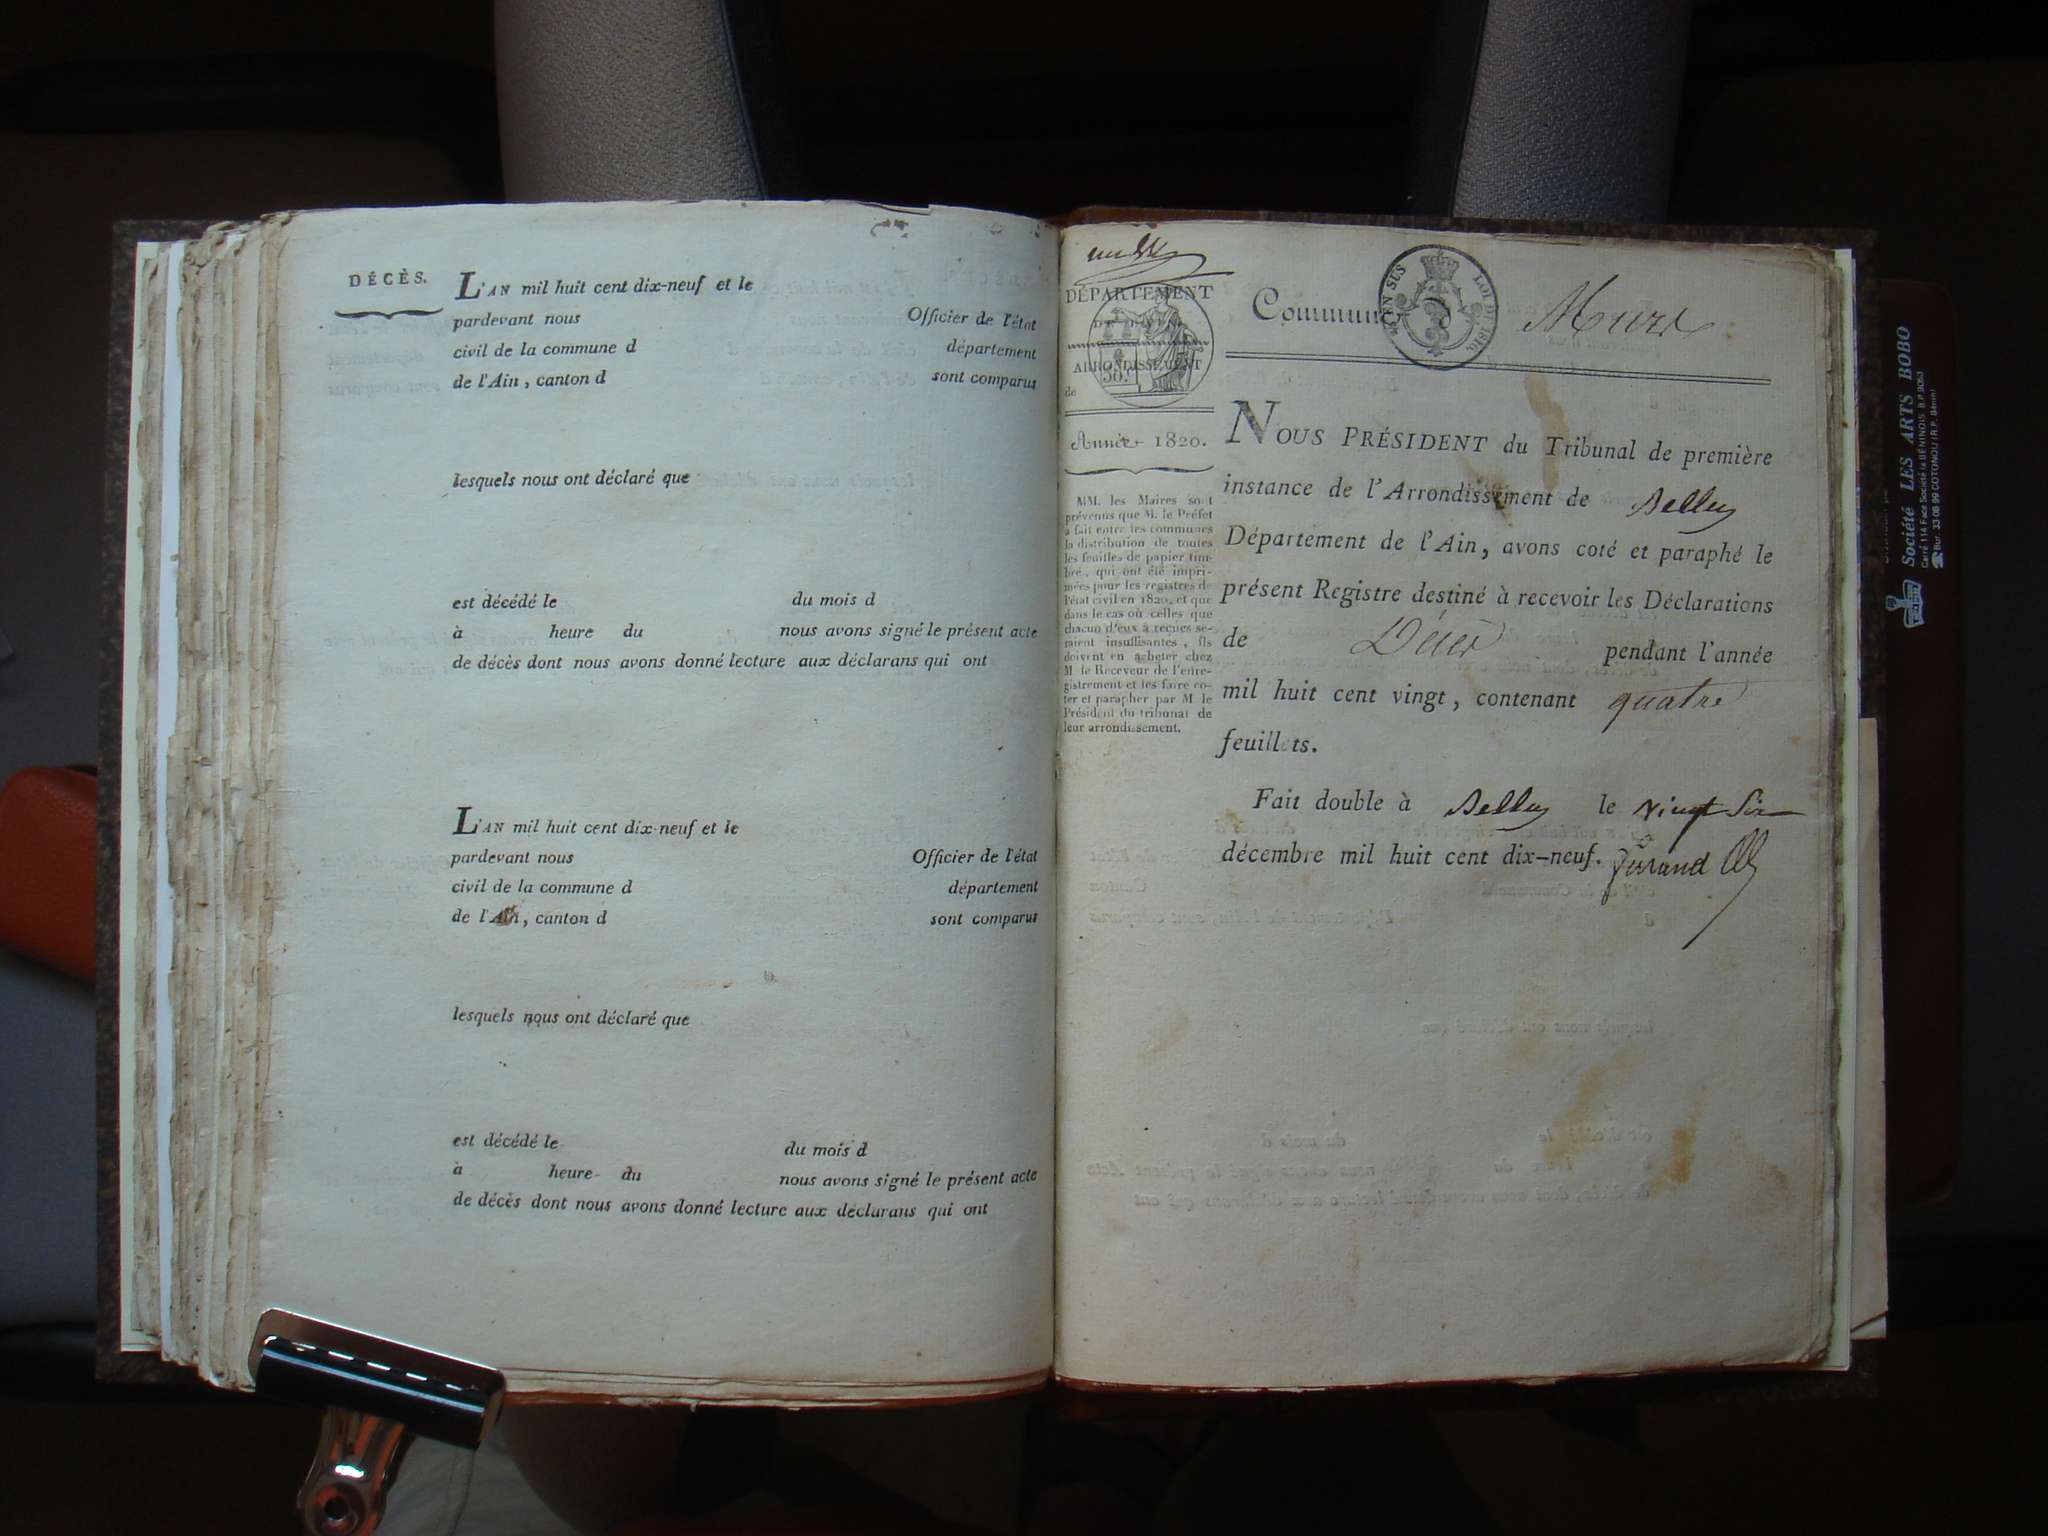 DÉCÈS.
L'AN mil huit cent dix-neuf et le
pardevant nous Officier de l'état
civil de la commune d département
de l'Ain, canton d sont comparus
lesquels nous ont déclaré que
est décédé le du mois d
à heure du nous avons signé le présent acte
de décès dont nous avons donné lecture aux déclarans qui ont
L'AN mil huit cent dix-neuf et le
pardevant nous Officier de l'état
civil de la commune d département
de l'Ain, canton d sont comparus
lesquels nous ont déclaré que
est décédé le du mois d
à heure du nous avons signé le présent acte
de décès dont nous avons donné lecture aux déclarans qui ont
DÉPARTEMENT
DE L'AIN.
ARRONDISSEMENT
de
50.c
Année 1820.
MM. les Maires sont
prévenus que M. le Préfet
a fait entre les communes
la distribution de toutes
les feuilles de papier tim-
bré, qui ont été impri-
mées pour les registres de
l'état civil en 1820, et que
dans le cas où celles que
chacun d'eux a reçues se-
raient insuffisantes, ils
doivent en acheter chez
M. le Receveur de l'enre-
gistrement et les faire co-
ter et parapher par M. le
Président du tribunal de
leur arrondissement.
Commune
EN SUS
LOI DE 1816.
Murs
NOUS PRÉSIDENT du Tribunal de première
instance de l'Arrondissement de Belley
Département de l'Ain, avons coté et paraphé le
présent Registre destiné à recevoir les Déclarations
de Décès pendant l'année
mil huit cent vingt, contenant quatre
feuillets.
Fait double à Belley le vingt six
décembre mil huit cent dix-neuf.
Durand
Société LES ARTS BOBO
Carré 114 Face Société la BÉNINOIS B.P. 9053
Bur. 33 08 99 COTONOU (R.P. Bénin)